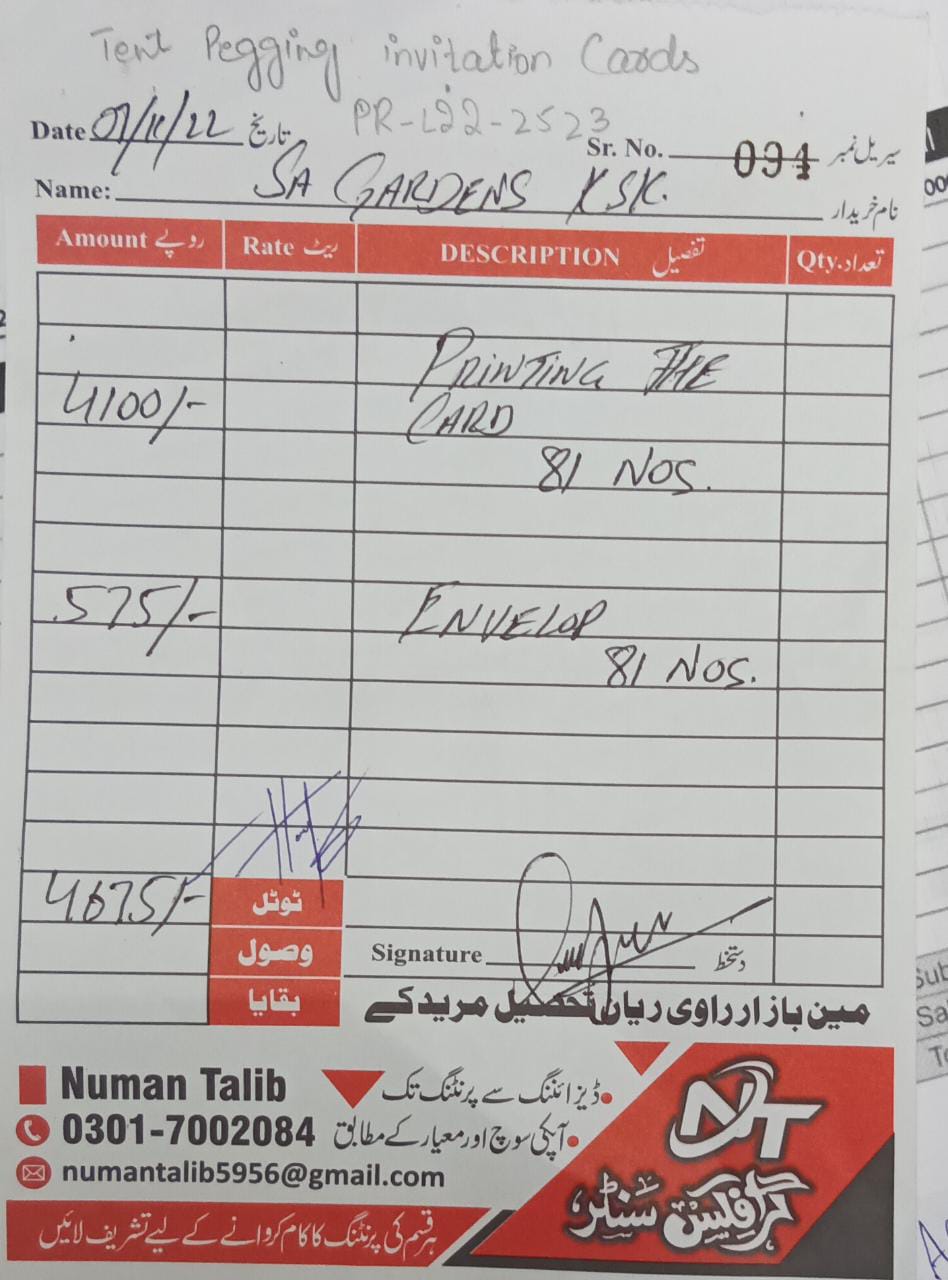 Tent Pegging invitation Cards
PR-L22-2523
Date 07/11/22 تاریخ
Sr. No. 094 سیریل نمبر
Name: SA GARDENS KSK. نام خریدار
Amount روپے Rate ریٹ DESCRIPTION تفصیل Qty. تعداد
PRINTING THE
4100/- CARD
81 NOS.
575/- ENVELOP
81 NOS.
4675/- ٹوٹل
وصول Signature دستخط
بقایا
مین بازار راوی ریان تحصیل مریدکے
Numan Talib
ڈیزائننگ سے پرنٹنگ تک
0301-7002084
آپکی سوچ اور معیار کے مطابق
numantalib5956@gmail.com
NT
گرافکس سنٹر
ہر قسم کی پرنٹنگ کا کام کروانے کے لیے تشریف لائیں
Sub
Sa
To